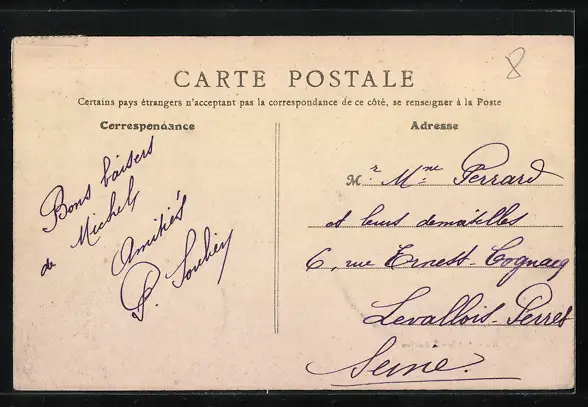 8
CARTE POSTALE
Certains pays étrangers n'acceptant pas la correspondance de ce côté, se renseigner à la Poste
Correspondance
Bons baisers
de Michel
Amitiés
P.
Adresse
M.r Mme Perrard
et leurs demoiselles
6, rue Ernest-Cognacq
Levallois-Perret
Seine.